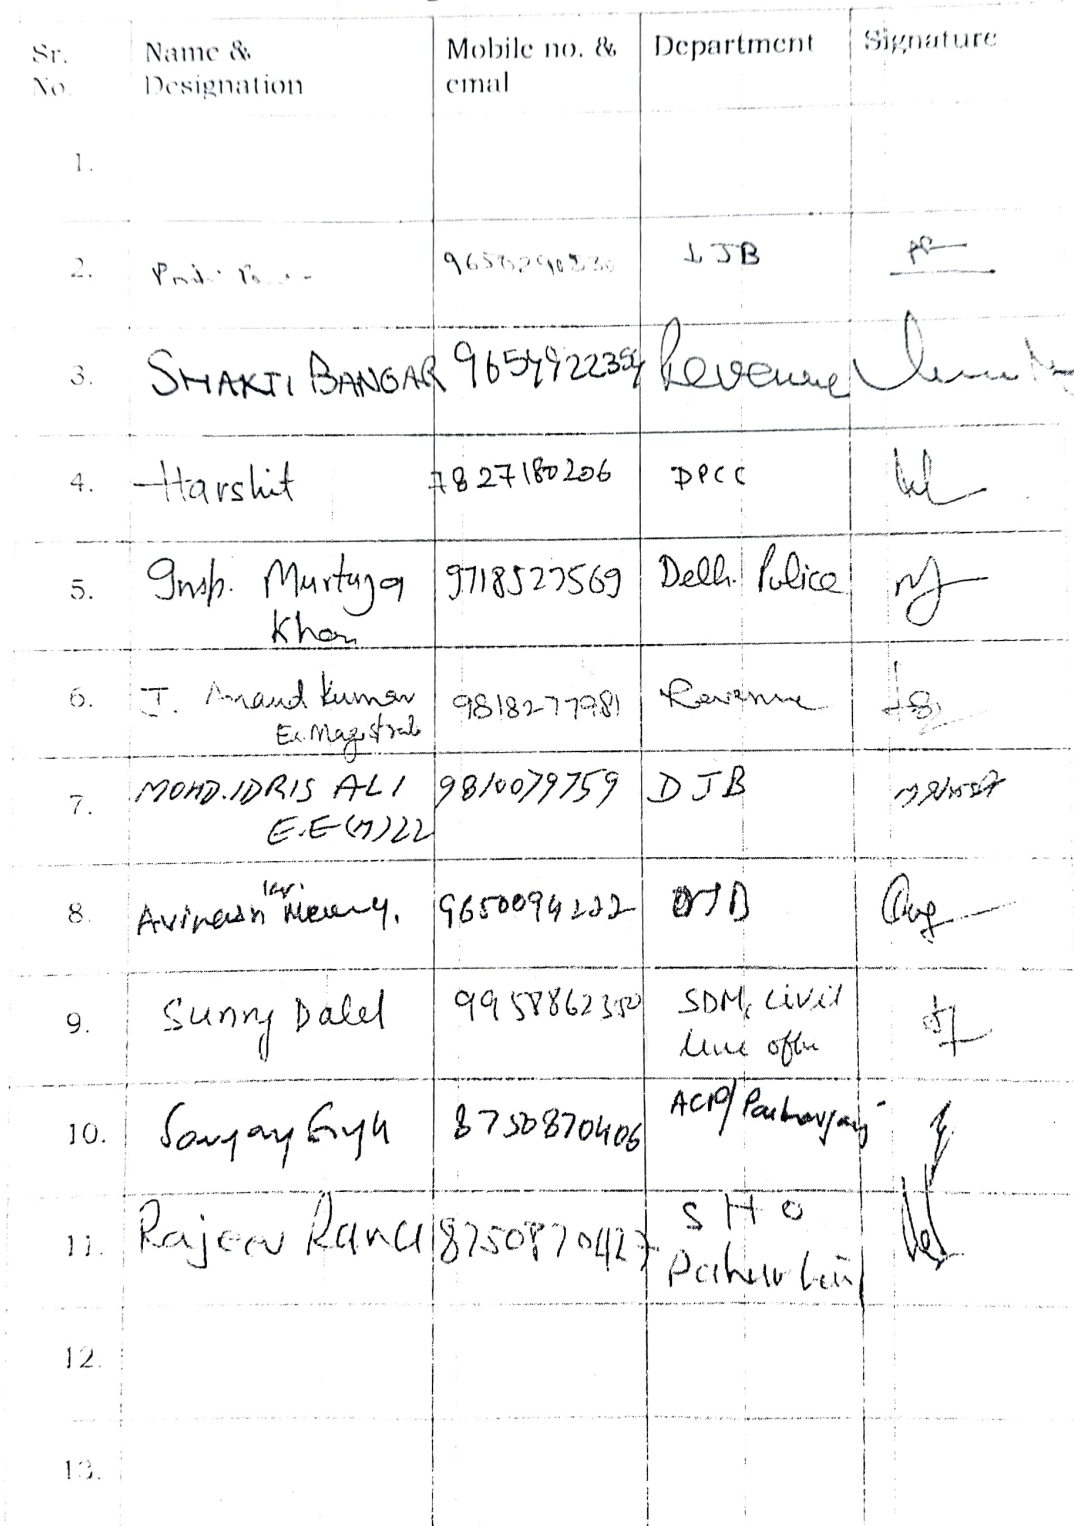 Sr. No. Name & Designation Mobile no. & emal Department Signature
1.
2. DJB
3. SHAKTI BANGAR 9654922354 Revenue
4. Harshit 7827180206 DPCC
5. Insp. Murtuza Khan 9718527569 Delhi Police
6. J. Anand Kumar Ex. Magistrate 9818277981 Revenue
7. MOHD. IDRIS ALI E.E(M)22 9810079759 DJB
8. Avinash 9650094222 DJB
9. Sunny Dalal 9958862350 SDM, Civil line office
10. Sanjay Singh 8750870406 ACP/ Paharganj
11. Rajeev Rana 8750870427 SHO
12.
13.